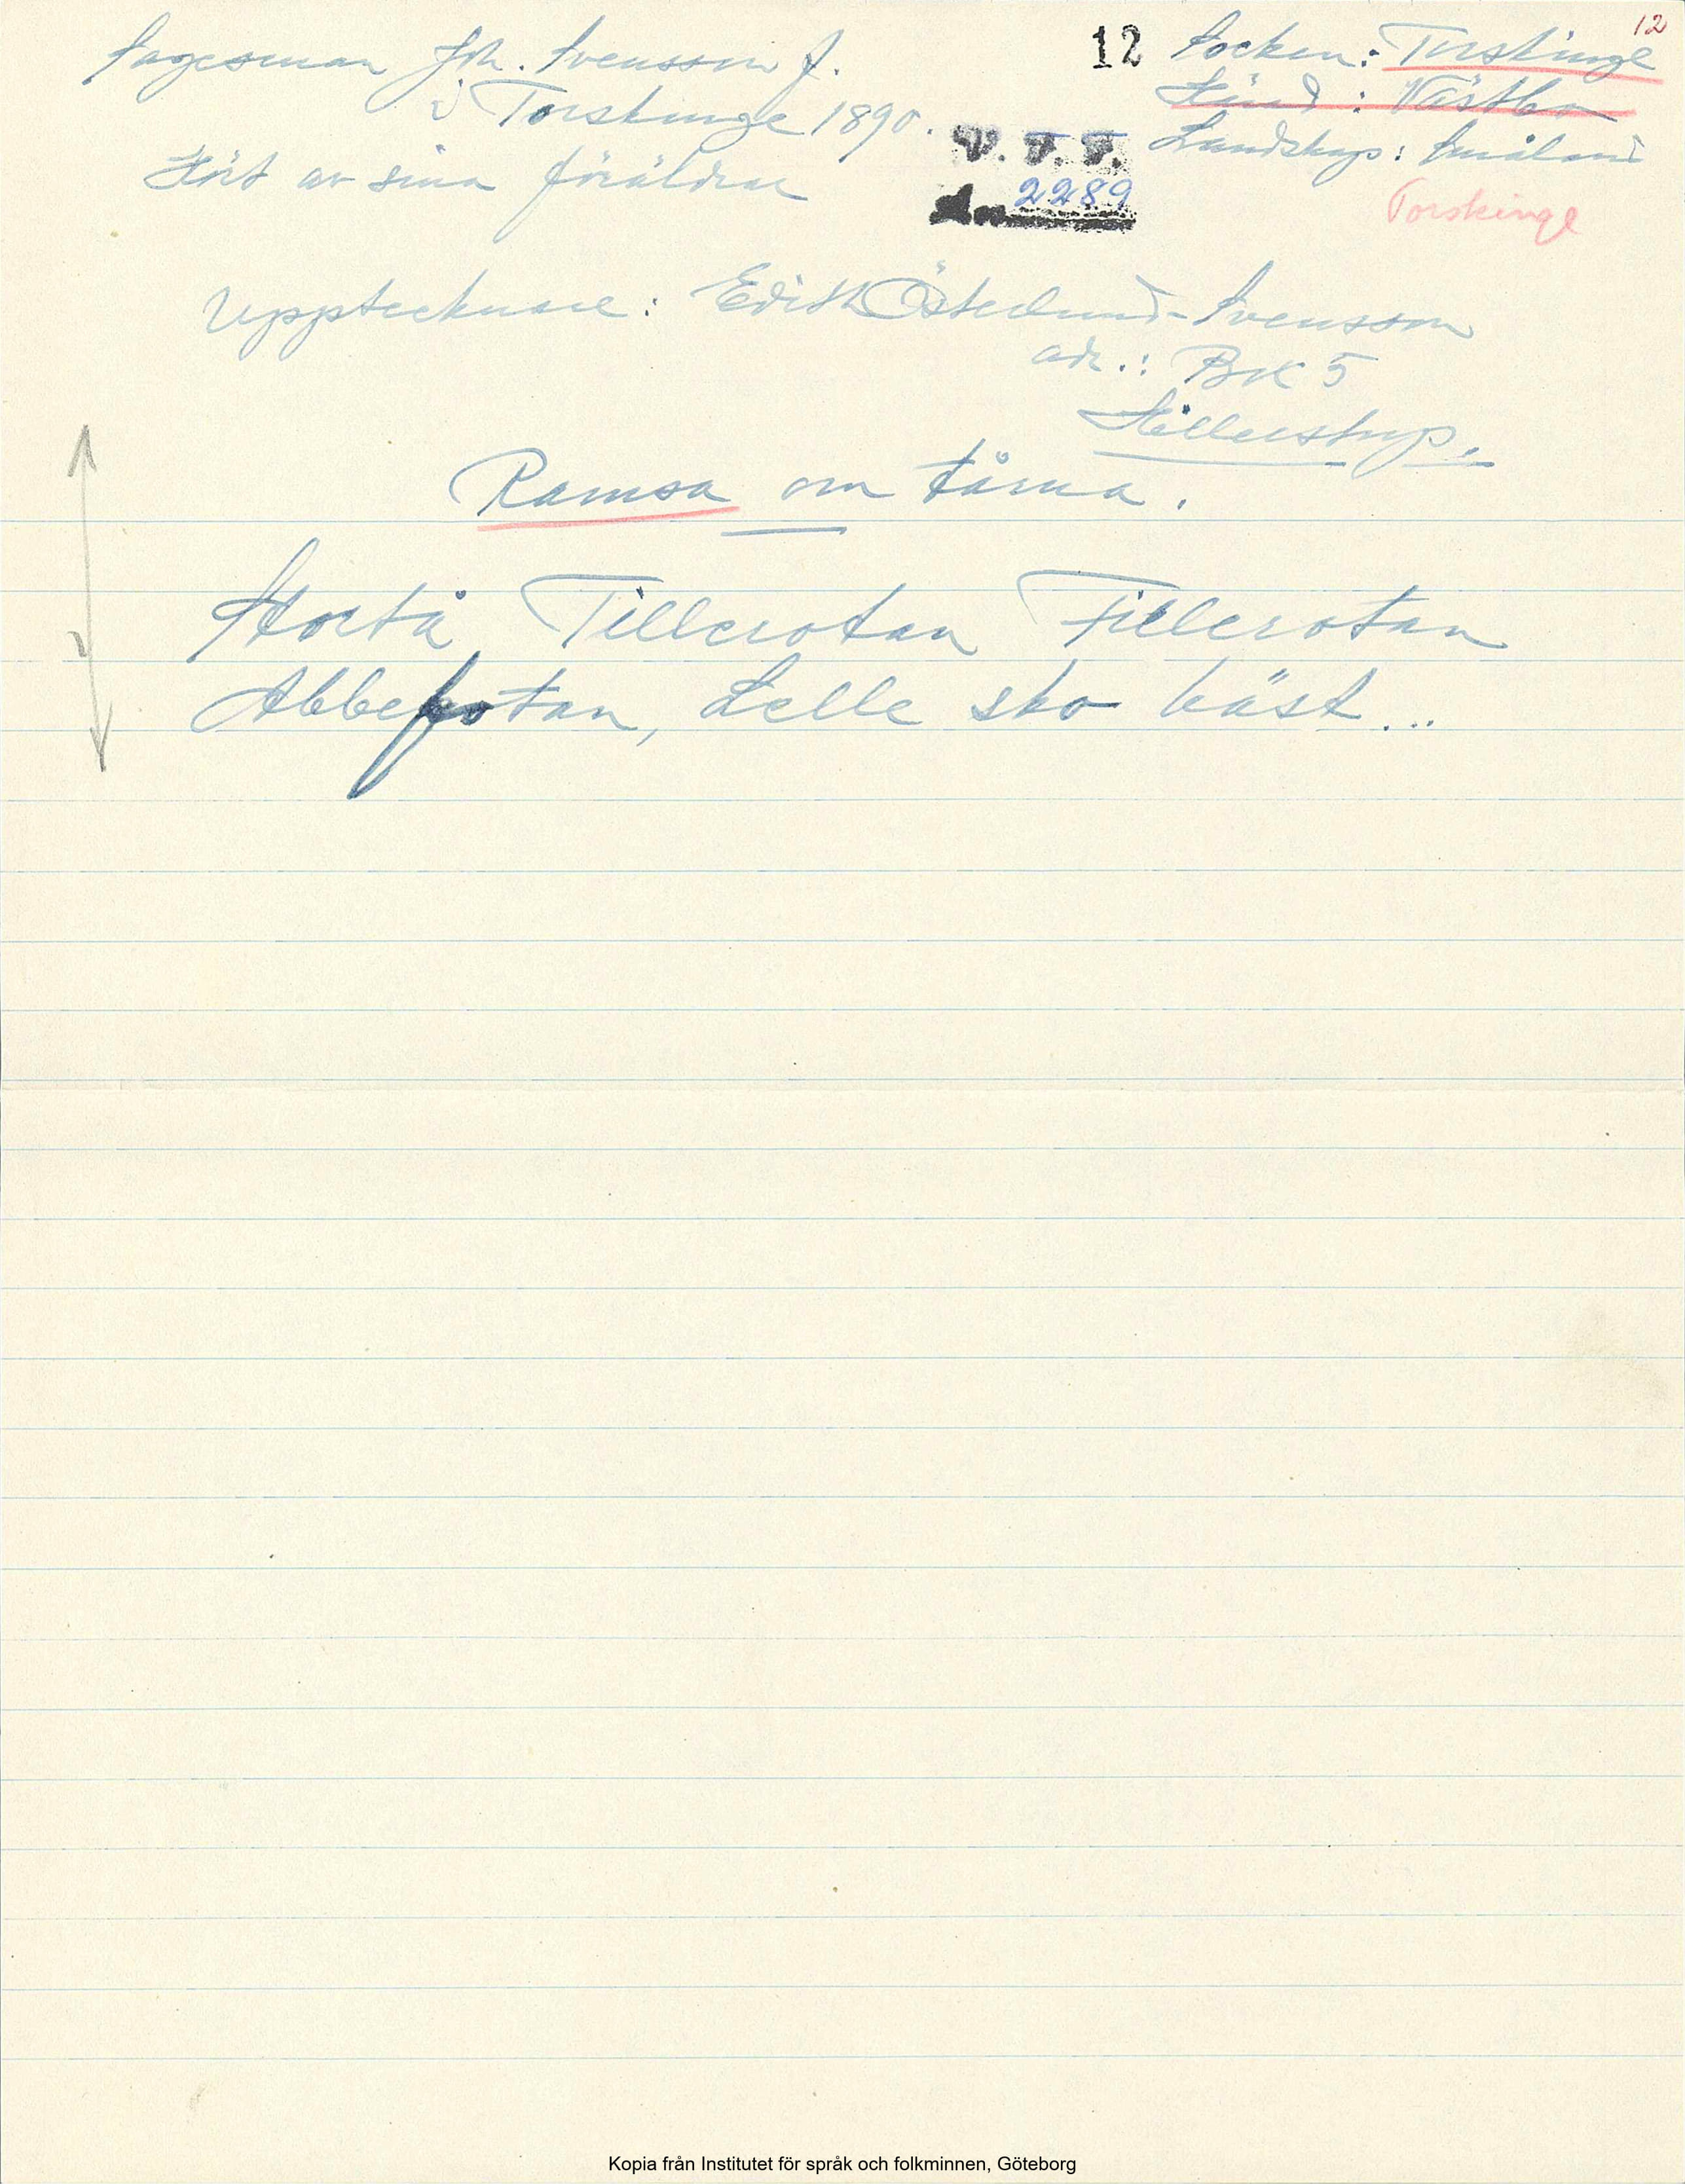 12
Sagesman Joh. Svensson f.
i Torskinge 1890.
Hört av sina föräldrar
12
V. F. F.
2289
Socken: Torskinge
Härad: Västbo
Landskap: Småland
Torskinge
Upptecknare: Edith Österlund-Svensson
adr.: BK 5
Hillerstorp.
Ramsa om tårna.
Stortå, Tillerotan Fillerotan
Abbepotan, Lelle sko bäst...
Kopia från Institutet för språk och folkminnen, Göteborg